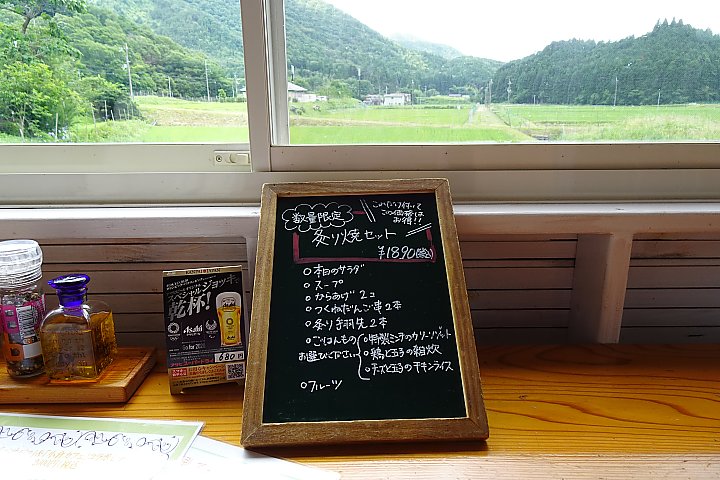 数量限定
これだけ付いて
この価格は
お得!!
炙り焼セット
¥1890(税込)
○本日のサラダ
○スープ
○からあげ2コ
○つくねだんご串2本
○炙り手羽先2本
○ごはんもの
お選びください
○特製ミンチのカリーリゾット
○鶏と玉子の雑炊
○チーズと玉子のチキンライス
○フルーツ
KANPAI JAPAN
スペシャルジョッキで
乾杯!
Asahi
680円